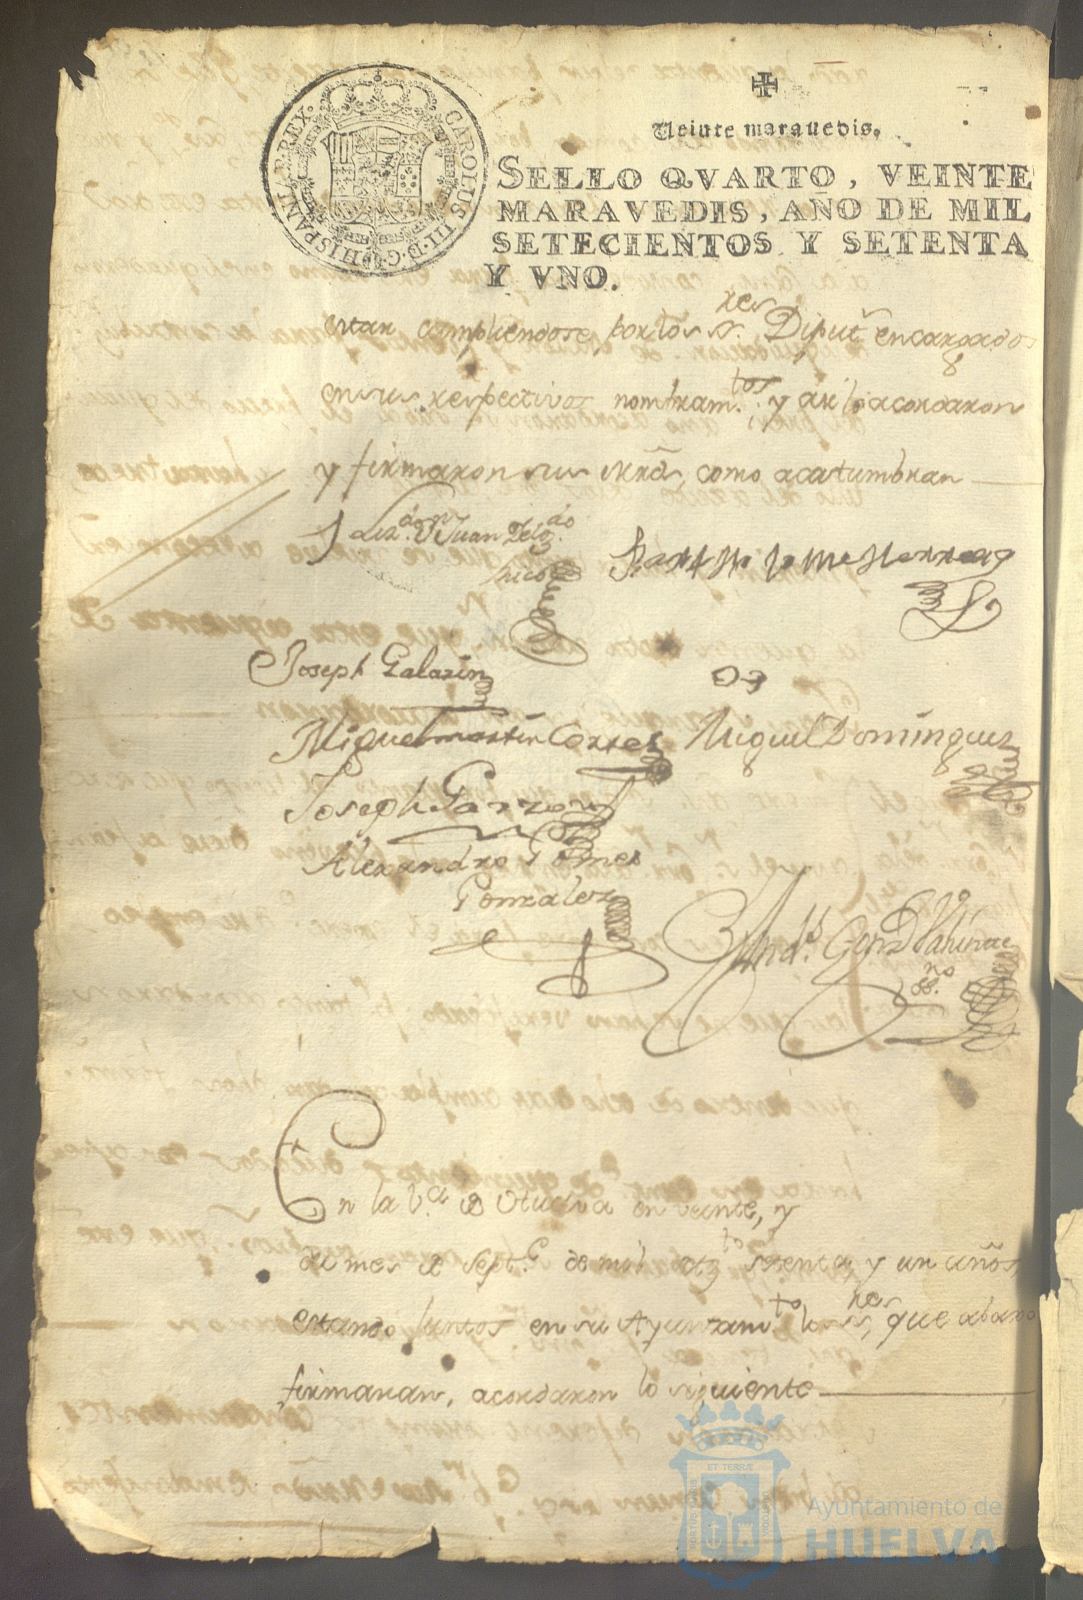 CAROLUS III D.G. HISPANIAR. REX.
Veinte maravedis.
SELLO QVARTO, VEINTE
MARAVEDIS, AÑO DE MIL
SETECIENTOS Y SETENTA
Y VNO.
estan cumpliendose por los S.res Diput.s encargados
en sus respectivos nombram.tos y asi lo acordaron
y firmaron sus mrds, como acostumbran
Liz.do d.n Juan Delg.do
Bartholome Herrera
Joseph Galasin
Miguel martin Cortes Miguel Dominguez
Joseph Garzon
Alexandro Gomes
Gonzalez
And.s
ss.no
En la v.a de Huelva en veinte, y
di mes de Sept.e de mil set.to setenta y un años,
estando juntos en su Ayuntam.to los s.res, que abaxo
firmaran, acordaron lo siguiente
ET TERRÆ
Ayuntamiento de
HUELVA